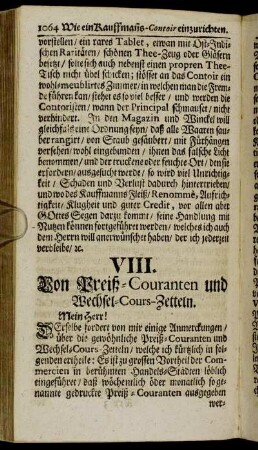 1064 Wie ein Kauffmañs-Contoir einzurichten.
vorstellen / ein rares Tablet, etwan mit Ost-Indi-
schen Raritäten / schönen Thee-Zeug oder Gläsern
besetzt / solte sich auch nebenst einen propren Thee-
Tisch nicht übel schicken; stösset an das Contoir ein
wohlmeublirtes Zimmer / in welchen man die Frem-
de führet: kan / stehet es so viel besser / und werden die
Contoristen / wann der Principal schmauset / nicht
verhindert. In den Magazin und Winckel will
gleichfalls eine Ordnung seyn / daß alle Waaren sau-
ber rangirt / von Staub gesäubert / mit Fürhängen
versehen / wohl eingebunden / ihnen das falsche Licht
benommen / und der truckene oder feuchte Ort / den sie
erfordern / ausgesucht werde / so wird viel Unrichtig-
keit / Schaden und Verlust dadurch hintertrieben /
und wo des Kauffmanns Fleiß / Renommè, Aufrich-
tigkeit / Klugheit und guter Credit, vor allen aber
GOttes Segen darzu kommt / seine Handlung mit
Nutzen können fortgeführet werden / welches ich auch
dem Herrn will anerwünschet haben / der ich jederzeit
verbleibe / ec.
VIII.
Von Preiß-Couranten und
Wechsel-Cours-Zetteln.
Mein Herr!
DErselbe fordert von mir einige Anmerckungen /
über die gewöhnliche Preiß-Couranten und
Wechsel-Cours-Zetteln / welche ich kürtzlich in fol-
genden ertheile: Es ist zu grossen Vortheil der Com-
mercien in berühmten Handels-Städten löblich
eingeführet / daß wöchentlich oder monatlich soge-
nannte gedruckte Preiß-Couranten ausgegeben
wer-